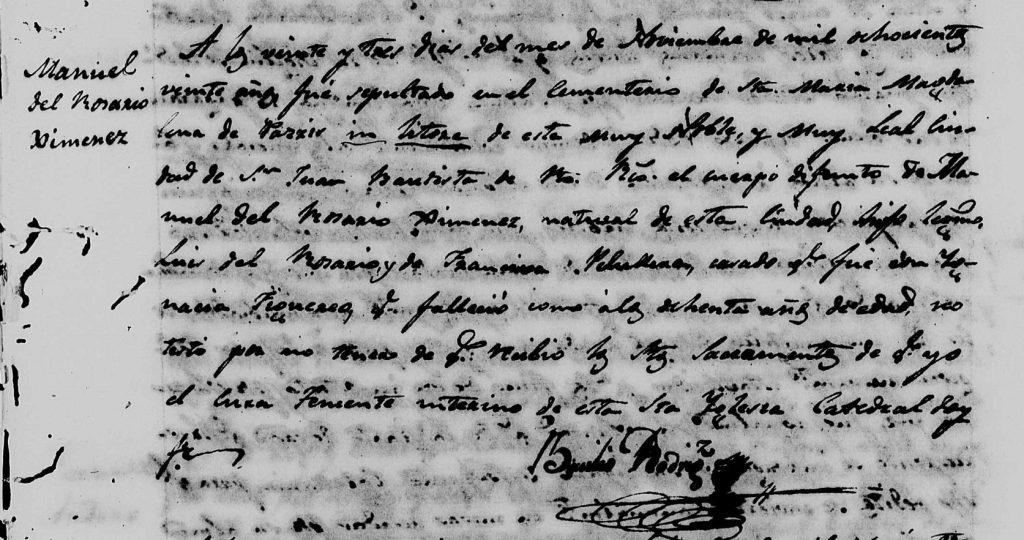 Manuel
del Rosario
Ximenez
A los veinte y tres dias del mes de Noviembre de mil ochocientos
veinte años fue sepultado en el Cementerio de Sta. Maria Magda
lena de Pazzis in litore de esta muy Noble, y muy Leal Ciu-
dad de Sn Juan Bautista de Pto. Rco. el cuerpo difunto de Ma-
nuel del Rosario Ximenez, natural de esta Ciudad, hijo legmo.
Luis del Rosario, y de Francisca casado qe. fue con Ig-
nacia Figueroa, qe. falleció como á los ochenta años de edad, no
testó por no tener de qe. recibió los Stos. Sacramentos de qe. yo
el Cura Teniente interino de esta Sta Yglesia Catedral doy
fe
Rodrigz.